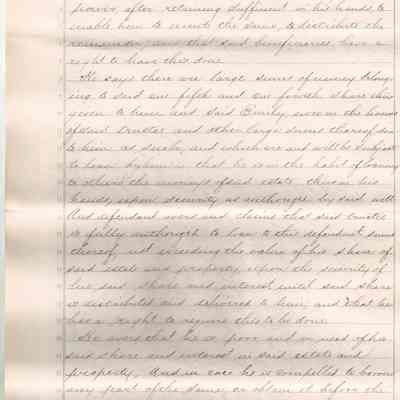 power, after retaining sufficient in his hands, to
enable him to meet the same, to distribute the
remainder, and that said beneficiaries have a
right to have this done
He says there are large sums of money belong-
ing to said one fifth and one fourth share thus
given to him and said Emily, now in the hands
of said Trustee and other large sums thereof due
to him as such, and which are and will be subject
to loan by him in that he is in the habit of loaning
to others the moneys of said estate thus in his
hands, upon security as authorized by said will
And defendant avers and claims that said trustee
is fully authorized to loan to this defendant sums
thereof, not exceeding the value of his share of
said estate and property, upon the security of
his said share and interest until said share
is distributed and delivered to him, and that he
has a right to require this to be done
He avers that he is poor and in need of his
said share and interest in said estate and
property, And in case he is compelled to borrow
any part of the same, or obtain it before the